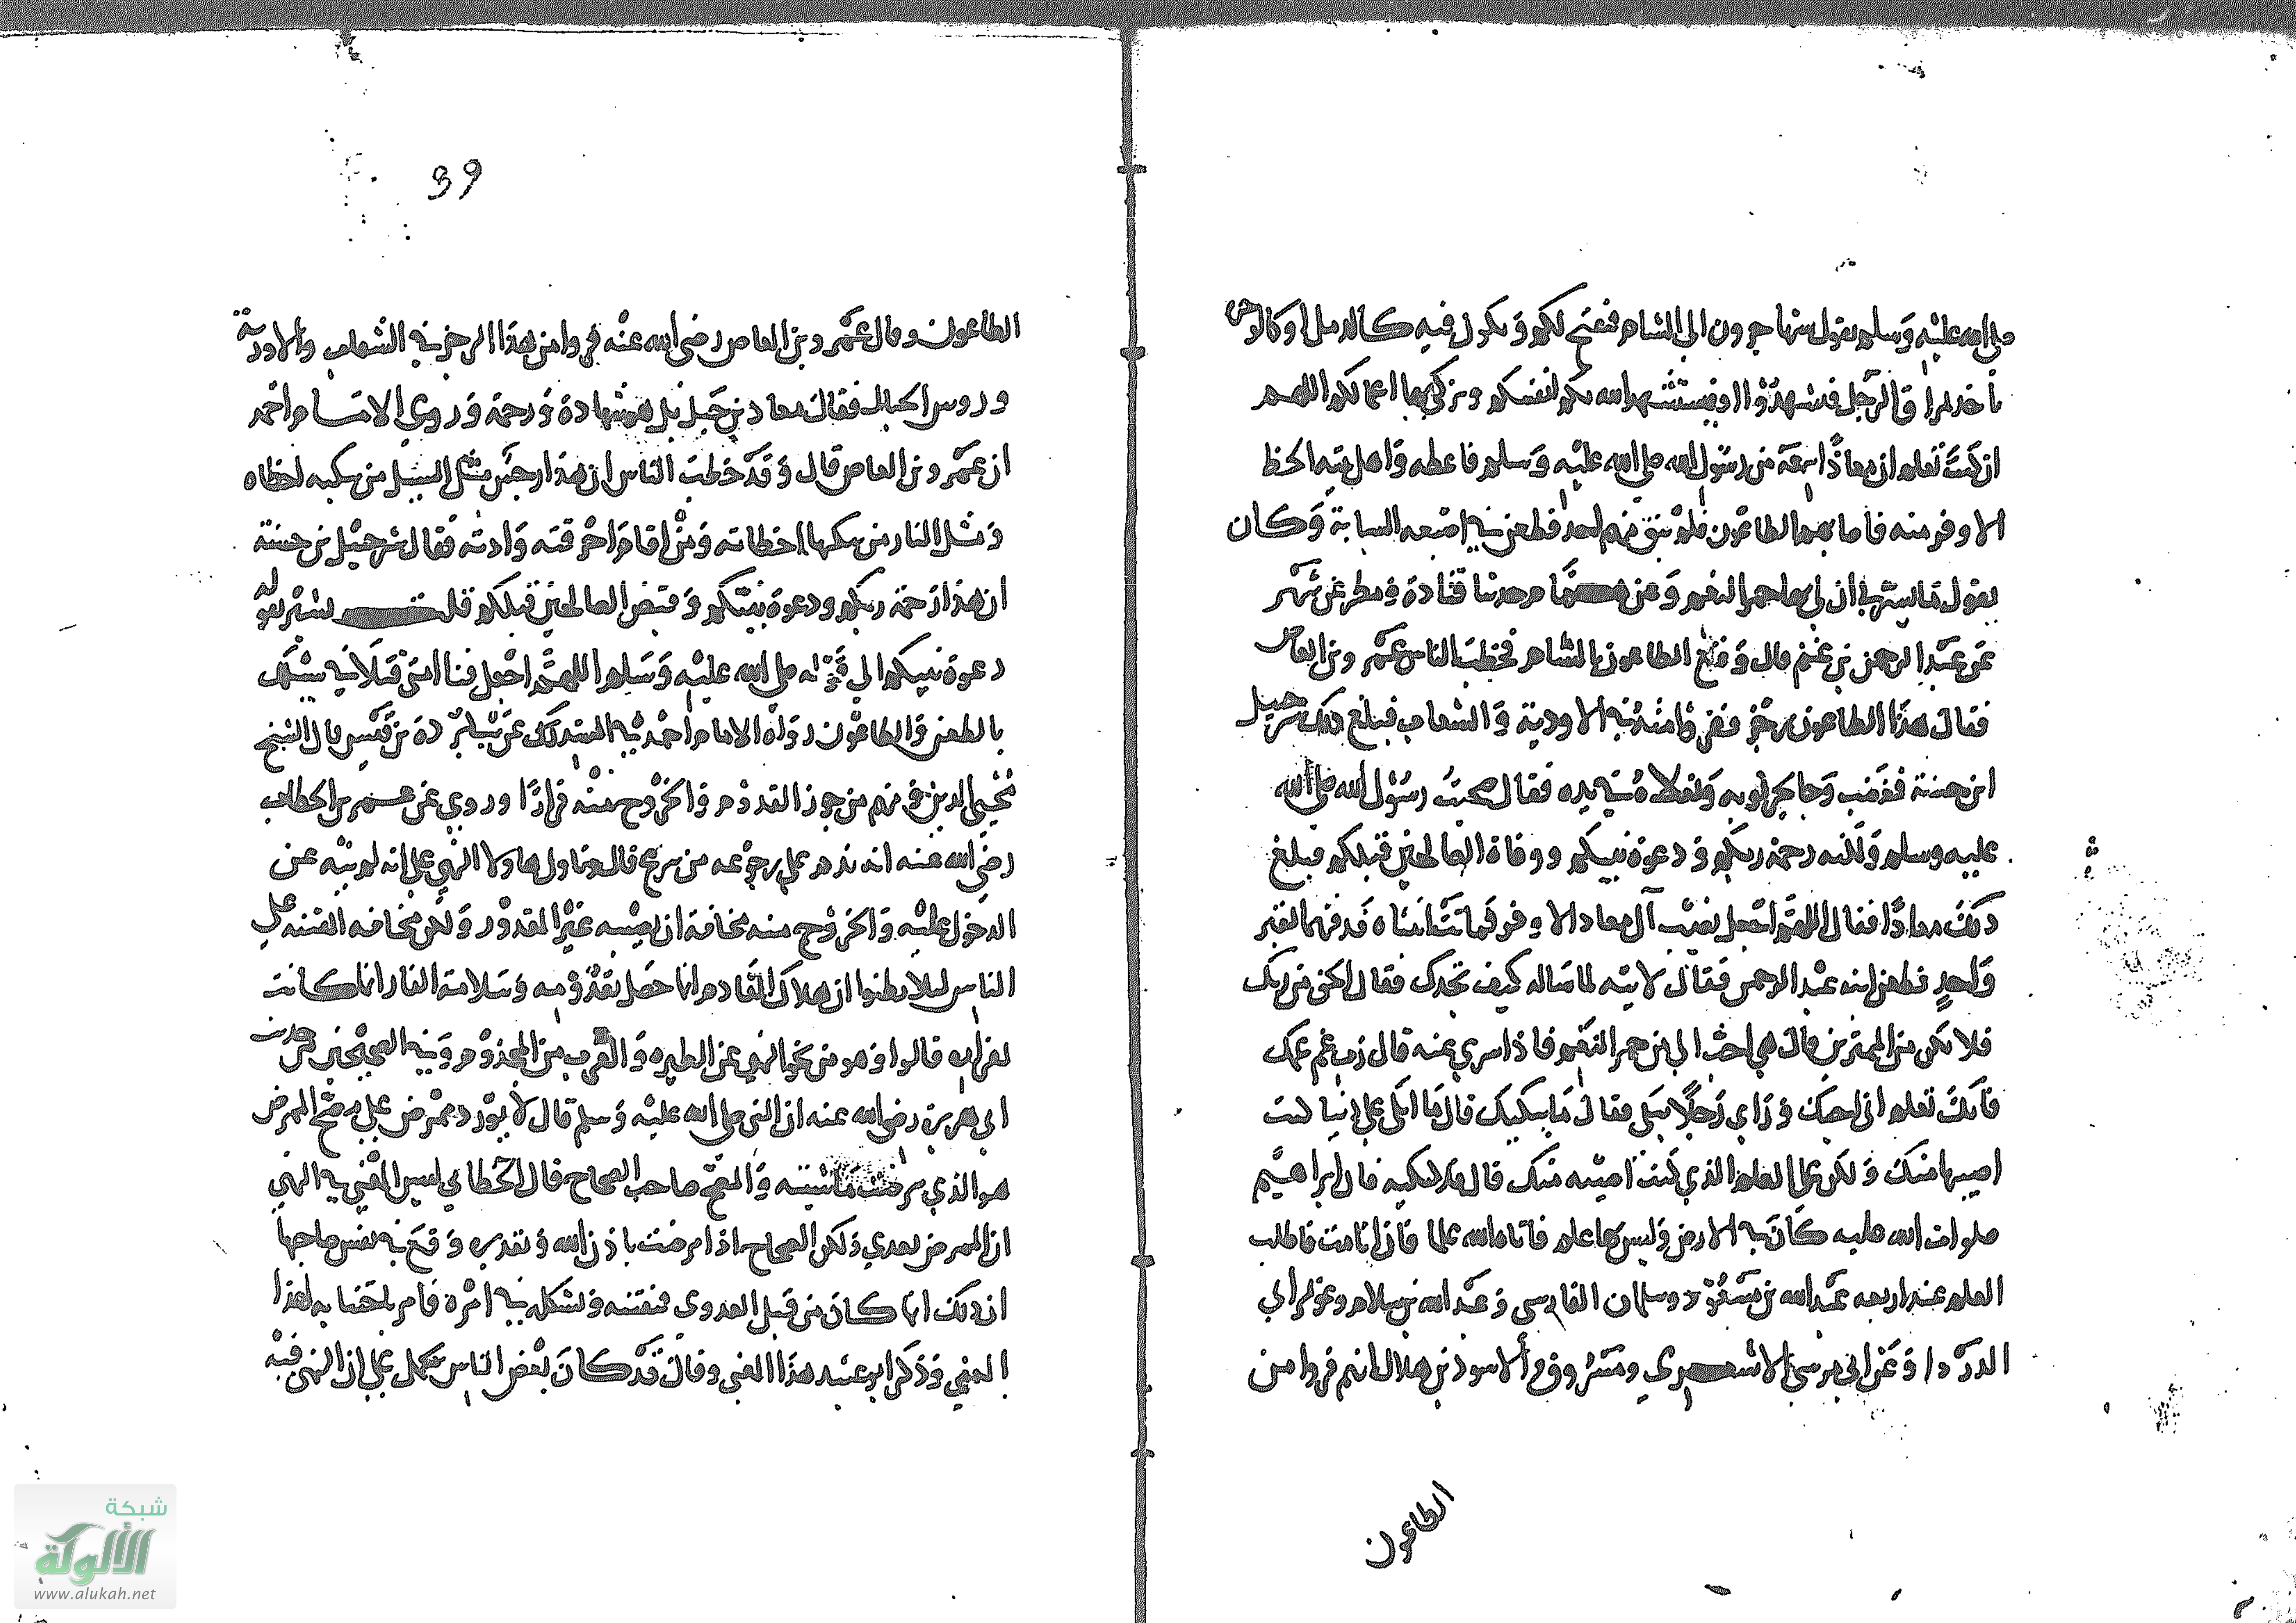 صلى الله عليه وسلم يقول ستهاجرون الى الشام فتفتح لكم ويكون فيه كالدمل او كالوخز
ياخذ الرجل فيستشهد الله به انفسكم ويزكي بها اعمالكم اللهم
ان كنت تعلم ان معاذا سمعه من رسول الله صلى الله عليه وسلم فاعطه واهل بيته الحظ
الاوفر منه فاصابهم الطاعون فلم يبق منهم احد فطعن في اصبعه السبابة وكان
يقول ما يسرني ان لي بها حمر النعم وعن همام حدثنا قتادة ومطر عن شهر
عن عبد الرحمن بن غنم قال وقع الطاعون بالشام فخطب الناس عمرو بن العاص
فقال هذا الطاعون رجز ففروا منه في الاودية والشعاب فبلغ ذلك شرحبيل
ابن حسنة فغضب وجا يجر ثوبه ونعلاه في يده فقال صحبت رسول الله صلى الله
عليه وسلم ولكنه رحمة ربكم ودعوة نبيكم ووفاة الصالحين قبلكم فبلغ
ذلك معاذا فقال اللهم اجعل نصيب آل معاذ الاوفر فماتت ابنتاه فدفنهما لقبر
واحد وطعن ابنه عبد الرحمن فقال لابيه لما ساله كيف تجدك فقال الحق من ربك
فلا تكن من الممترين قال هي احب الي من حمر النعم فاذا سري عنه قال رب غم غمك
فانك تعلم اني احبك وراي رجلا يبكي فقال ما يبكيك قال ما ابكي على دنيا كنت
اصيبها منك ولكن على العلم الذي كنت اصيبه منك قال فلا تبكيه فان ابراهيم
صلوات الله عليه كان في الارض وليس بها علم فاتاه الله علما فان انا مت فاطلب
العلم عند اربعه عبد الله بن مسعود وسلمان الفارسي وعبد الله بن سلام وعويمر ابي
الدردا وعن ابي موسى الاشعري ومسروق والاسود بن هلال انهم فروا من
الطاعون
39
الطاعون وقال عمرو بن العاص رضي الله عنه فروا من هذا الرجز في الشعاب والاودية
وروس الجبال فقال معاذ بن جبل بل هو شهادة ورحمة وروى الامام احمد
ان عمرو بن العاص قال وقد خطب الناس ان هذا رجس مثل السيل من ينكبه اخطاه
ومثل النار من ينكبها اخطاته ومن اقام احرقته واذته فقال شرحبيل بن حسنة
ان هذا رحمة ربكم ودعوة نبيكم وقبض الصالحين قبلكم قلت يشير بقوله
دعوة نبيكم الى قوله صلى الله عليه وسلم اللهم اجعل فنا امتي قتلا في سبيلك
بالطعن والطاعون رواه الامام احمد في المستدرك عن بن قيس قال الشيخ
محيي الدين فمنهم من جوز القدوم والخروج منه فرارا وروي عن عمر بن الخطاب
رضي الله عنه انه ندم على رجوعه من سرغ قال وتاول هاولا النهي على انه لم ينه عن
الدخول عليه والخروج منه مخافة ان يصيبه غير المقدور ولكن مخافه الفتنه على
الناس ليلا يظنوا ان هلاك القادم انما حصل بقدومه وسلامة الفار انما كانت
لفراره قالوا وهو من نحو النهي عن الطيره والقرب من المجذوم وفي الصحيحين من حديث
ابي هريرة رضي الله عنه ان النبي صلى الله عليه وسلم قال لا يورد ممرض على مصح الممرض
هو الذي مرضت ماشيته والمصح صاحب الصحاح قال الخطابي ليس المعنى في النهي
ان الممرض يعدي ولكن الصحاح اذا مرضت باذن الله وتقديره وقع في نفس صاحبها
ان ذلك انما كان من قبل العدوى فتفتنه وتشككه في امره فامر باجتنابه لهذا
المعنى وذكر ابو عبيد هذا المعنى وقال قد كان بعض الناس يحمل على ان النهي فيه
شبكة
الألوكة
www.alukah.net